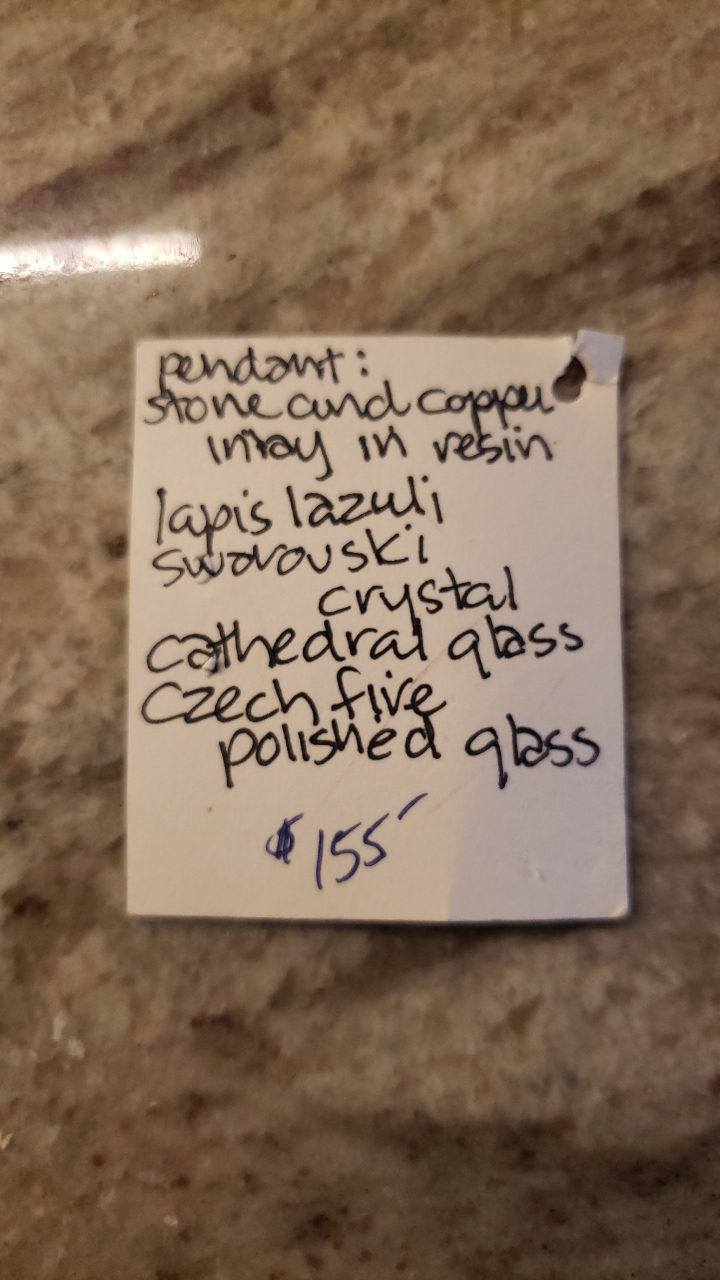 pendant:
stone and copper
inlay in resin
lapis lazuli
swarovski
crystal
cathedral glass
Czech fire
polished glass
$155